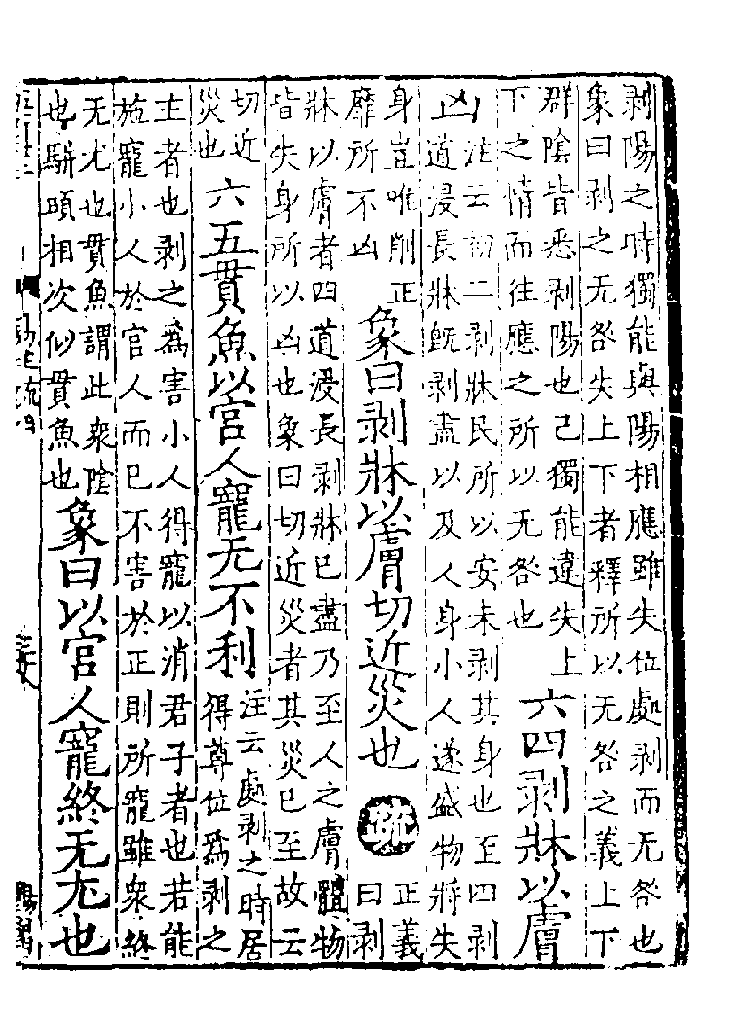 剥陽之時獨能與陽相應雖失位處剥而无咎也
象曰剥之无咎失上下者釋所以无咎之義上下
群陰皆悉剥陽也己獨能違失上
下之情而往應之所以无咎也
六四剥牀以膚
凶
注云初二剥牀民所以安未剥其身也至四剥
凶道浸長牀旣剥盡以及人身小人遂盛物將失
身豈唯削正
靡所不凶
象曰剥牀以膚切近災也
疏
正義
曰剥
牀以膚者四道浸長剥牀已盡乃至人之膚體物
皆失身所以凶也象曰切近災者其災已至故云
切近
災也
六五貫魚以宮人寵无不利
注云處剥之時居
得尊位爲剥之
主者也剥之爲害小人得寵以消君子者也若能
施寵小人於官人而已不害於正則所寵雖衆終
无尤也貫魚謂此衆陰
也駢頭相次似貫魚也
象曰以宮人寵終无尤也